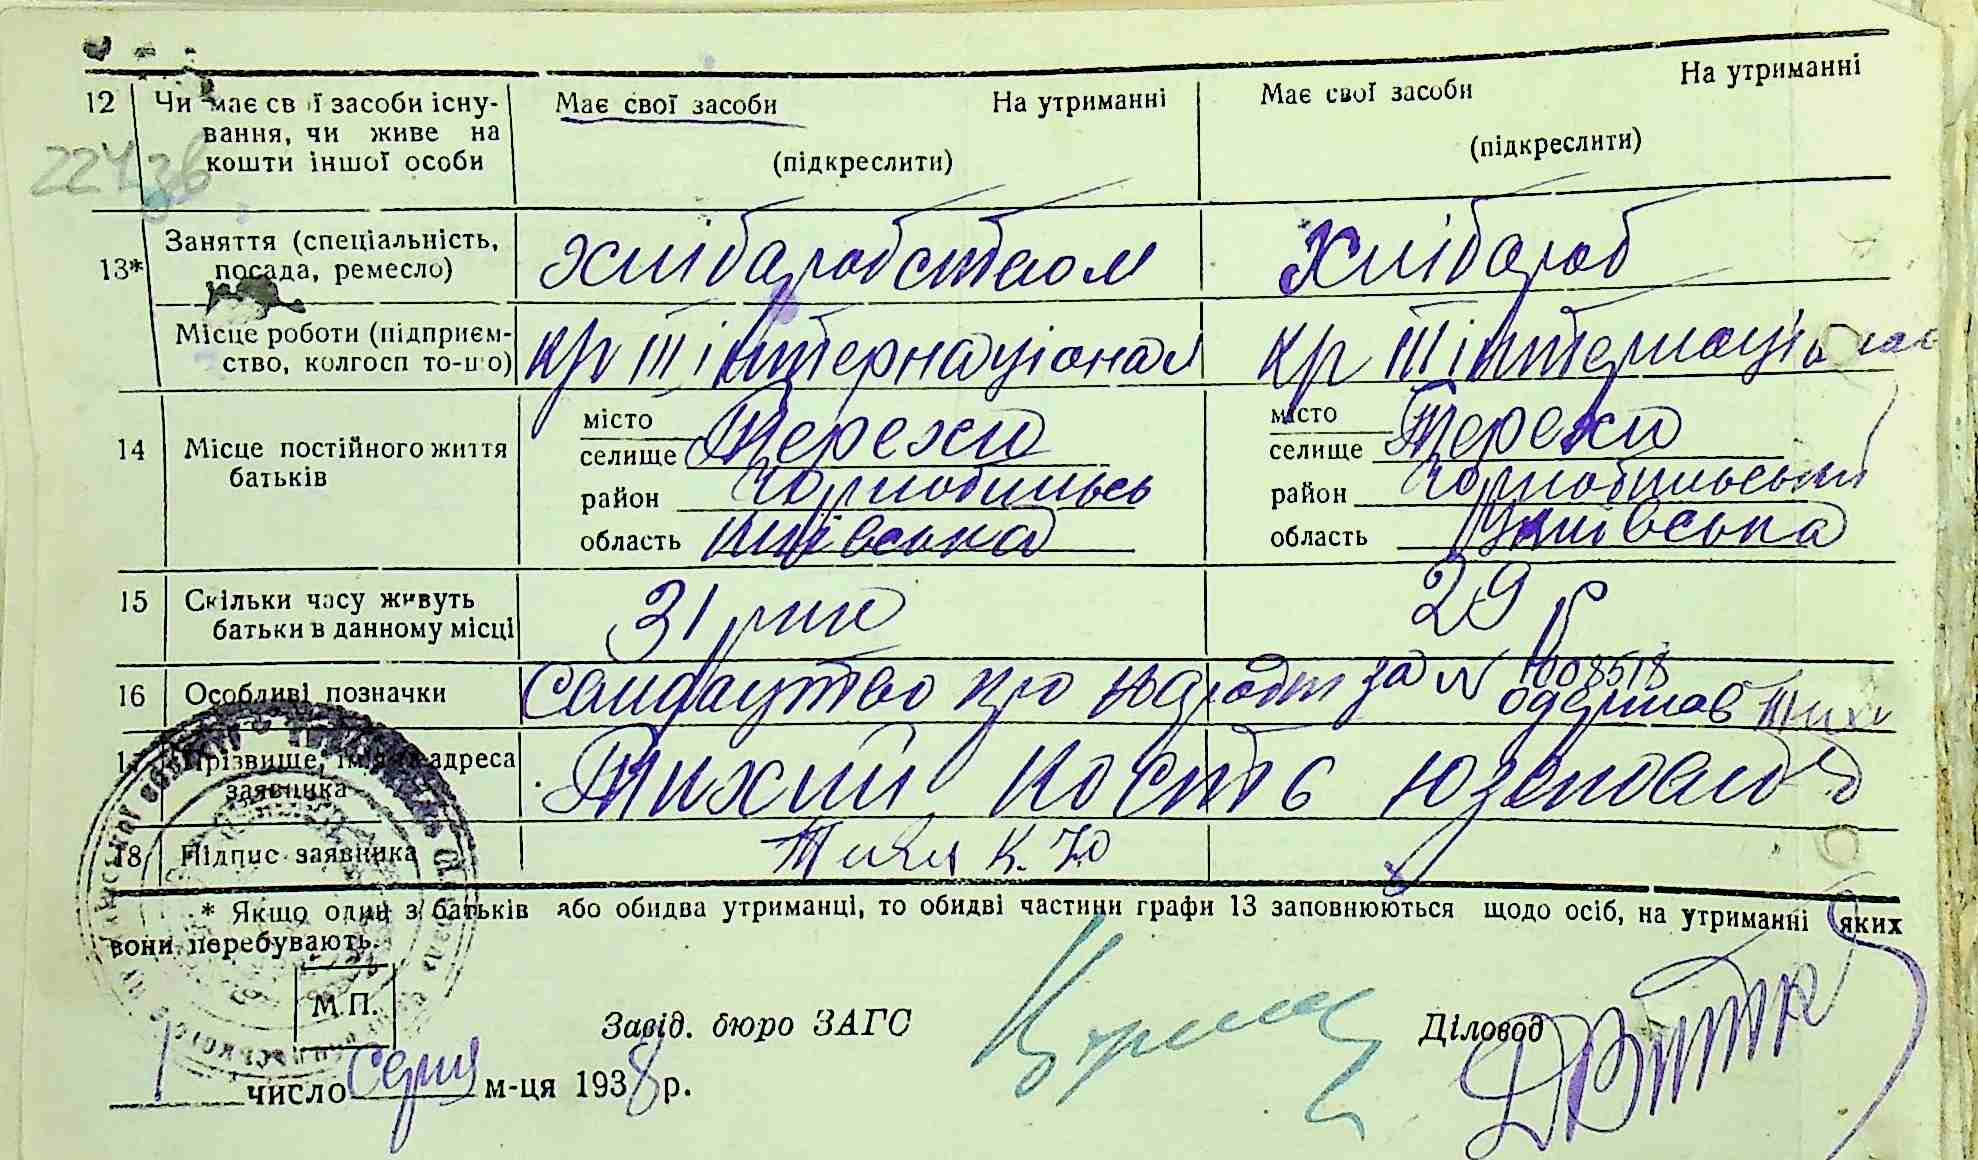 12 Чи має св ї засоби існу- Має свої засоби На утриманні Має свої засоби На утриманні
вання, чи живе на
кошти іншої особи (підкреслити) (підкреслити)
224зв
13* Заняття (спеціальність, хлібаробством Хлібароб
посада, ремесло)
Місце роботи (підприєм- кр III інтернаціонал кр III інтернаціонал
ство, колгосп то-що)
14 Місце постійного життя батьків місто місто
селище Терехи селище Терехи
район Чорнобильсь район Чорнобильський
область Київська область Київська
15 Скільки часу живуть 31 рик 29 р
батьки в данному місці
16 Особливі позначки Свидауцтво про народж за N 1008518
одержав Тихи
17 Прізвище, ім'я адреса Тихий Кость Юзепович
заявника
18 Підпис заявника Тихи К. Ю
* Якщо один з батьків або обидва утриманці, то обидві частини графи 13 заповнюються щодо осіб, на утриманні яких
вони перебувають.
М.П.
Завід. бюро ЗАГС Діловод
1 число Серпя м-ця 1938 р.